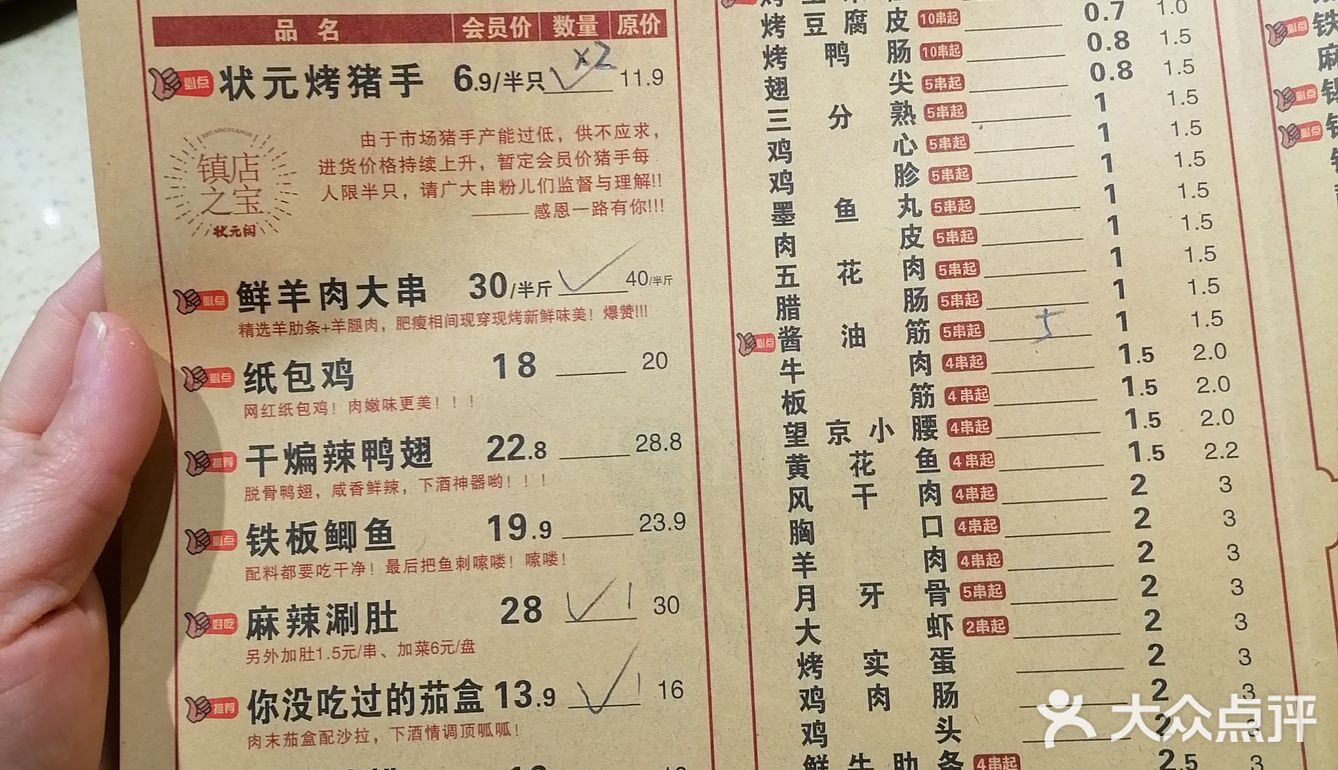 品名 会员价 数量 原价
必点 状元烤猪手 6.9/半只 ×2 11.9
ZHUANGYUANGE
镇店之宝
状元阁
由于市场猪手产能过低，供不应求，
进货价格持续上升，暂定会员价猪手每
人限半只，请广大串粉儿们监督与理解!!
——感恩一路有你!!!
必点 鲜羊肉大串 30/半斤 40/半斤
精选羊肋条+羊腿肉，肥瘦相间现穿现烤新鲜味美！爆赞!!!
必点 纸包鸡 18 20
网红纸包鸡！肉嫩味更美！！！
推荐 干煸辣鸭翅 22.8 28.8
脱骨鸭翅，咸香鲜辣，下酒神器哟！！！
必点 铁板鲫鱼 19.9 23.9
配料都要吃干净！最后把鱼刺嗦喽！嗦喽！
好吃 麻辣涮肚 28 1 30
另外加肚1.5元/串、加菜6元/盘
推荐 你没吃过的茄盒 13.9 1 16
肉末茄盒配沙拉，下酒情调顶呱呱！
烤豆腐皮 10串起 0.7 1.0
烤鸭肠 10串起 0.8 1.5
翅尖 5串起 0.8 1.5
三分熟 5串起 1 1.5
鸡心 5串起 1 1.5
鸡胗 5串起 1 1.5
墨鱼丸 5串起 1 1.5
肉皮 5串起 1 1.5
五花肉 5串起 1 1.5
腊肠 5串起 1 1.5
必点 酱油筋 5串起 5 1 1.5
牛肉 4串起 1.5 2.0
板筋 4串起 1.5 2.0
望京小腰 4串起 1.5 2.0
黄花鱼 4串起 1.5 2.2
风干肉 4串起 2 3
胸口 4串起 2 3
羊肉 4串起 2 3
月牙骨 5串起 2 3
大虾 2串起 2 3
烤实蛋 2 3
鸡肉肠 2 3
鸡头 2 3
鲜牛肋条 4串起 2.5 3
必点
必点
必点
大众点评